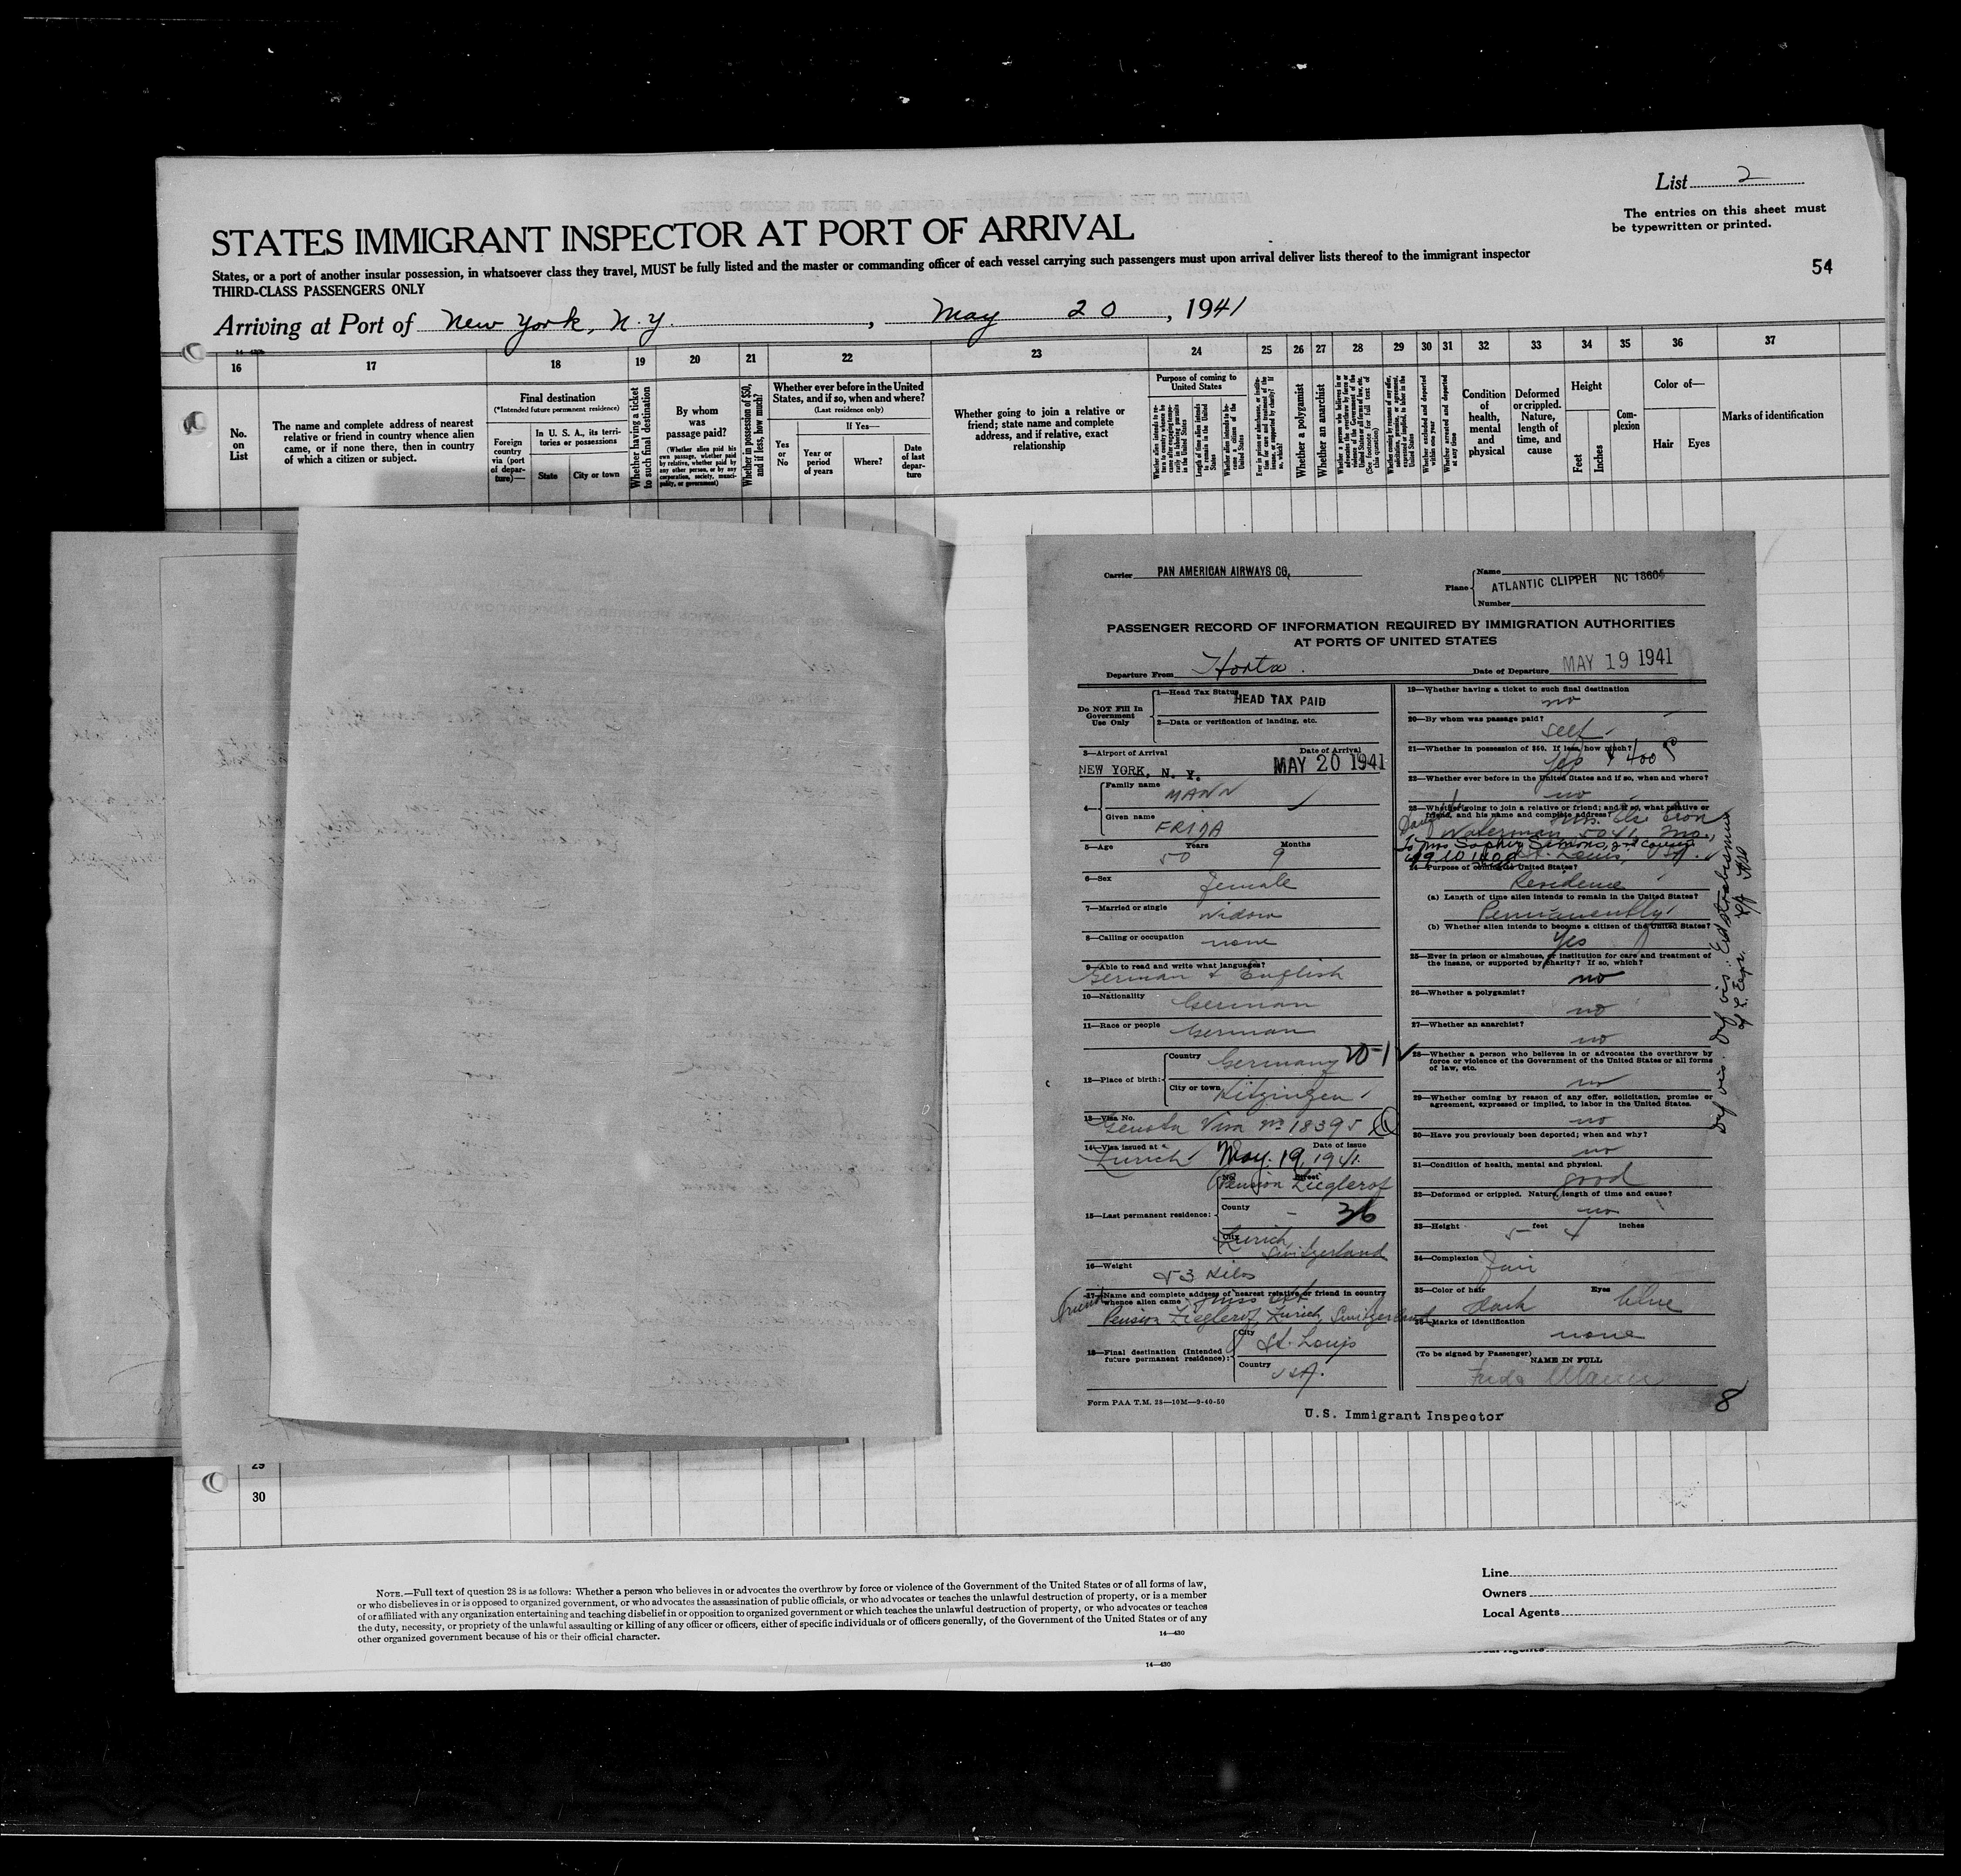 List 2
The entries on this sheet must
be typewritten or printed.
STATES IMMIGRANT INSPECTOR AT PORT OF ARRIVAL
States, or a port of another insular possession, in whatsoever class they travel, MUST be fully listed and the master or commanding officer of each vessel carrying such passengers must upon arrival deliver lists thereof to the immigrant inspector
THIRD-CLASS PASSENGERS ONLY
54
Arriving at Port of New York, N.Y. , May 20, 1941
16 17 18 19 20 21 22 23 24 25 26 27 28 29 30 31 32 33 34 35 36 37
No.
on
List
The name and complete address of nearest
relative or friend in country whence alien
came, or if none there, then in country
of which a citizen or subject.
Final destination
(*Intended future permanent residence)
Foreign
country
via (port
of depar-
ture)—
In U. S. A., its terri-
tories or possessions
State
City or town
Whether having a ticket
to such final destination
By whom
was
passage paid?
(Whether alien paid his
own passage, whether paid
by relative, whether paid by
any other person, or by any
corporation, society, munici-
pality, or government)
Whether in possession of $50,
and if less, how much?
Whether ever before in the United
States, and if so, when and where?
(Last residence only)
Yes
or
No
If Yes—
Year or
period
of years
Where?
Date
of last
depar-
ture
Whether going to join a relative or
friend; state name and complete
address, and if relative, exact
relationship
Purpose of coming to
United States
Whether a polygamist
Whether an anarchist
Condition
of
health,
mental
and
physical
Deformed
or crippled.
Nature,
length of
time, and
cause
Height
Feet
Inches
Com-
plexion
Color of—
Hair
Eyes
Marks of identification
Carrier PAN AMERICAN AIRWAYS CO.
Plane Name
ATLANTIC CLIPPER NC 18604
Number
PASSENGER RECORD OF INFORMATION REQUIRED BY IMMIGRATION AUTHORITIES
AT PORTS OF UNITED STATES
Departure From Horta
Date of Departure MAY 19 1941
Do NOT Fill In
Government
Use Only
1—Head Tax Status HEAD TAX PAID
2—Data or verification of landing, etc.
3—Airport of Arrival Date of Arrival
NEW YORK, N. Y. MAY 20 1941
4— Family name MANN
Given name FRIDA
5—Age Years Months
50 9
6—Sex female
7—Married or single widow
8—Calling or occupation none
9—Able to read and write what languages?
German & English
10—Nationality German
11—Race or people German
12—Place of birth: Country Germany
City or town Kitzingen
13—Visa No.
Visa No 18395
14—Visa issued at Date of issue
Zurich May. 19, 1941.
15—Last permanent residence: No. Street
Pension Zieglerof
County - 36
City Zurich,
Switzerland
16—Weight 53 Kilos
17—Name and complete address of nearest relative or friend in country
whence alien came Miss
friend
Pension Zieglerof, Zurich, Switzerland
18—Final destination (Intended
future permanent residence):
City St. Louis
Country USA.
Form PAA T.M. 28—10M—9-40-50
19—Whether having a ticket to such final destination
no
20—By whom was passage paid?
self
21—Whether in possession of $50. If less, how much?
yes $400
22—Whether ever before in the United States and if so, when and where?
no
23—Whether going to join a relative or friend; and if so, what relative or
friend, and his name and complete address?
Mrs.
Waterman, 5041, Mo.,
To Mrs Sophie Simons, 2nd cousin
St. Louis,
24—Purpose of coming to United States?
Residence
(a) Length of time alien intends to remain in the United States?
Permanently
(b) Whether alien intends to become a citizen of the United States?
Yes
25—Ever in prison or almshouse, or institution for care and treatment of
the insane, or supported by charity? If so, which?
no
26—Whether a polygamist?
no
27—Whether an anarchist?
no
28—Whether a person who believes in or advocates the overthrow by
force or violence of the Government of the United States or all forms
of law, etc.
no
29—Whether coming by reason of any offer, solicitation, promise or
agreement, expressed or implied, to labor in the United States.
no
30—Have you previously been deported; when and why?
no
31—Condition of health, mental and physical.
good
32—Deformed or crippled. Nature, length of time and cause?
no
33—Height 5 feet 4 inches
34—Complexion fair
35—Color of hair dark Eyes blue
36—Marks of identification
none
(To be signed by Passenger)
NAME IN FULL
Frida Mann
8
U.S. Immigrant Inspector
29
30
NOTE.—Full text of question 28 is as follows: Whether a person who believes in or advocates the overthrow by force or violence of the Government of the United States or of all forms of law,
or who disbelieves in or is opposed to organized government, or who advocates the assassination of public officials, or who advocates or teaches the unlawful destruction of property, or is a member
of or affiliated with any organization entertaining and teaching disbelief in or opposition to organized government or which teaches the unlawful destruction of property, or who advocates or teaches
the duty, necessity, or propriety of the unlawful assaulting or killing of any officer or officers, either of specific individuals or of officers generally, of the Government of the United States or of any
other organized government because of his or their official character.
14—430
Line
Owners
Local Agents
14—430